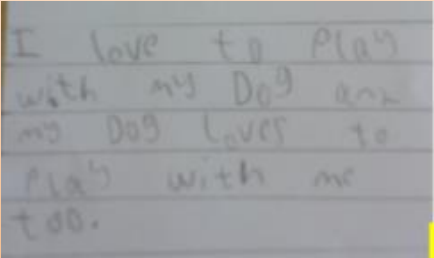 I love to Play
with my Dog and
my Dog loves to
Play with me
too.